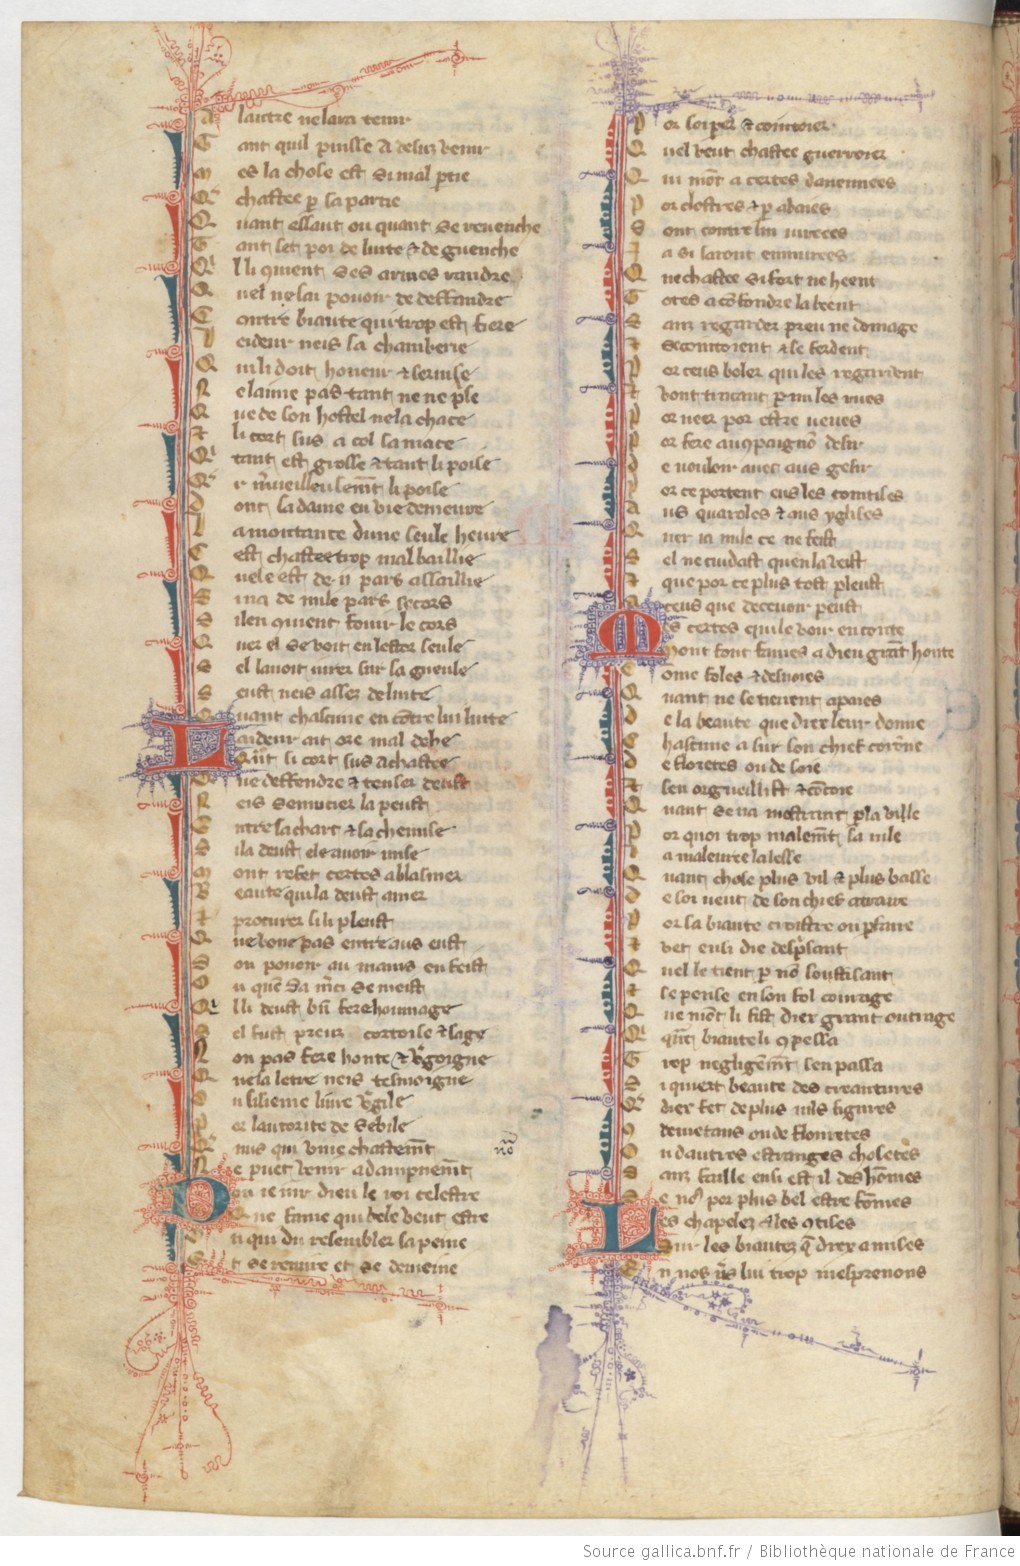 A lautre ne laira tenir
T ant quil puisse a desus venir
M es la chose est si mal partie
Chastee per sa partie
Q uant assaut ou quant se revenche
T ant set por de luite & de guenche
Q uil li covient ses armes rendre
Quel ne lai pooir de deffendre
C ontre biaute qui trop est fiere
L eideur neis sa chamberie
Q ui li doit honeur & servise
N e laime pas tant ne ne prise
Q ue de son hostel ne la chace
li cort sus a col la mace
Q tant est grosse & tant li poise
Q merveilleusement li poise
D ont sa dame en vie demeure
L a montance dune seule heure
C est chastee trop mal baillie
Q uele est de ii pars assaillie
S ina de nule pars secors
S i len convient fouir le cors
Q uer el se voit en lestor seule
S el lavoit juree sur la gueule
S eust neis assez de luite
Q uant chascune en contre lui luite
L aideur ait ore mal dehe
Quant li cort sus a chastee
Q ue deffendre & tenser deust
N eis se mucier la peust
E ntre sa char & la chemise
S i la deust ele avoir mise
M ont refet certes a blasmer
B eaute qui la deust amer
procurer sili pleust
Q ue bone pes entre aus eust
D ou pooir au mains en feist
O u quen sa merci se meist
Q lli deust bien fere hommage
S el fust preuz cortoise & sage
N on pas fere honte & vergoigne
Q ue la letre neis tesmoigne
u sisieme livre Virgile
P or lautorite de Sebile
Q nus qui vive chastement
N e puet venir a dampnement
D on ie iur dieu le roi celestre
Q ue fame qui bele veut estre
O u qui du resembler sa peine
E t se remire et se demeine
P or soi parer & cointoier
Q uel veut chastee guerroier
Q ui mont a certes danemies
P or cloistres & per abaies
S ont contre lui jurees
a si seront enmurees
Q ne chastee si fort ne heent
T otes a confondre la beent
S anz regarder preu ne domage
se cointoient & se fardent
P or ceus boler qui les regardent
vont traçant par mi les rues
P or veer por estre veues
P or fere aus compaignons desir
D e vouloir avec aus gesir
P or ce portent eus les cointises
A us quaroles & aus yglises
Q uer ia nule ce ne feist
S el ne cuidast quen la veist
que por ce plus tost pleust
A ceus que decevoir peust
M es certes qui le voir en conte
Mont font fames a dieu grant honte
C ome foles & desvoies
Q uant ne se tienent apaies
D e la beaute que diex leur donne
C hascune a sur son chief coronne
D e floretes ou de soie
sen orgueillist & cointoie
Q uant se va mostrant par la ville
P or quoi trop malement savile
L a maleuree la lesse
Q uant chose plus vil & plus basse
D e soi veut de son chief atraire
P or sa biaute croistre ou parfaire
vet ensi die desprisant
Q uel le tient por non souffisant
se pense en son fol courage
Q ue mont li fist diex grant outrage
Q quant biaute li compassa
T rop negligemment sen passa
S i quiert beaute des creatures
Q diex fet de plus vils figures
D e metaus ou de flouretes
O u dautres estranges choses
S anz faille ensi est il des hommes
S e nos por plus bel estre fommes
L es chapelez & les cointises
S ur les biautez que diex a mises
E n nos vers lui trop mesprenons
Source gallica.bnf.fr / Bibliothèque nationale de France